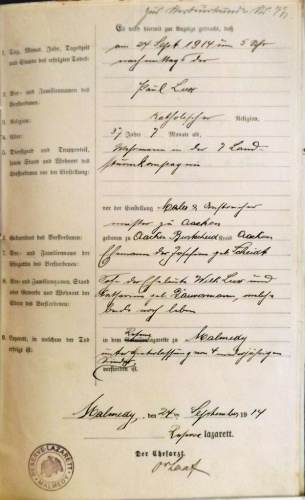 Zur Sterbeurkunde Nr.
Es wird hiermit zur Anzeige gebracht, daß
1. Tag, Monat, Jahr, Tageszeit und Stunde des erfolgten Todes:
am 24 Sept. 1914 um 5 Uhr
nachmittags der
2. Vor- und Familiennamen des Verstorbenen:
Paul Lux
3. Religion:
katholischer Religion,
4. Alter:
37 Jahre 7 Monate alt,
5. Dienstgrad und Truppenteil, sowie Stand und Wohnort des Verstorbenen vor der Einstellung:
Wehrmann in der 7 Land-
sturmkompagnie
vor der Einstellung Maler & Anstreicher
meister zu Aachen
6. Geburtsort des Verstorbenen:
geboren zu Aachen Burtscheid Kreis Aachen
7. Vor- und Familienname der Ehegattin des Verstorbenen:
Ehemann der Josefine geb. Scheidt
8. Vor- und Familiennamen, Stand oder Gewerbe und Wohnort der Eltern des Verstorbenen:
Sohn der Eheleute Wilh. Lux und
Katharina geb. welche
beide noch leben
9. Lazarett, in welchem der Tod erfolgt ist:
in dem Reserve lazarette zu Malmedy
unter Hinterlassung von 4 minderjährigen
Kinder
verstorben ist.
Malmedy, den 24. September 1914
Reserve lazarett.
Der Chefarzt.
RESERVE-LAZARETT
MALMEDY